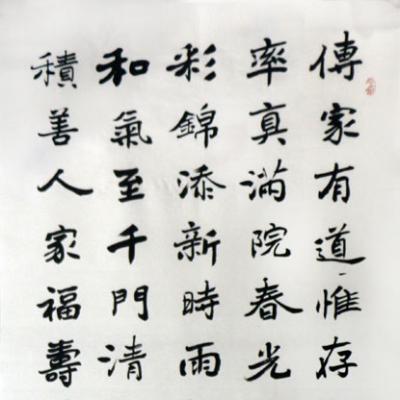 傳家有道惟存
率真滿院春光
彩錦添新時雨
和氣至千門清
積善人家福壽